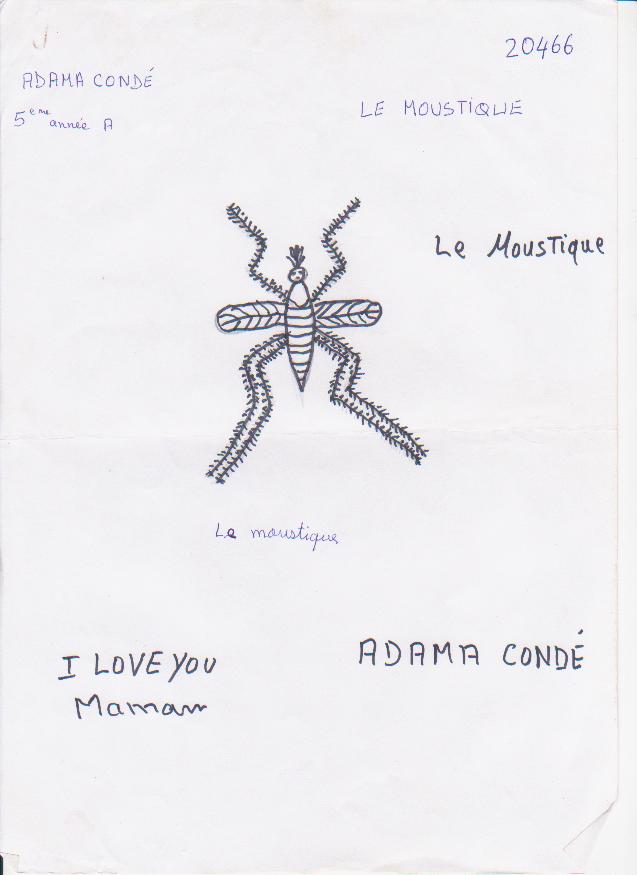 20466
ADAMA CONDÉ
LE MOUSTIQUE
5eme année A
Le Moustique
Le moustique
I LOVE YOU
Maman
ADAMA CONDÉ